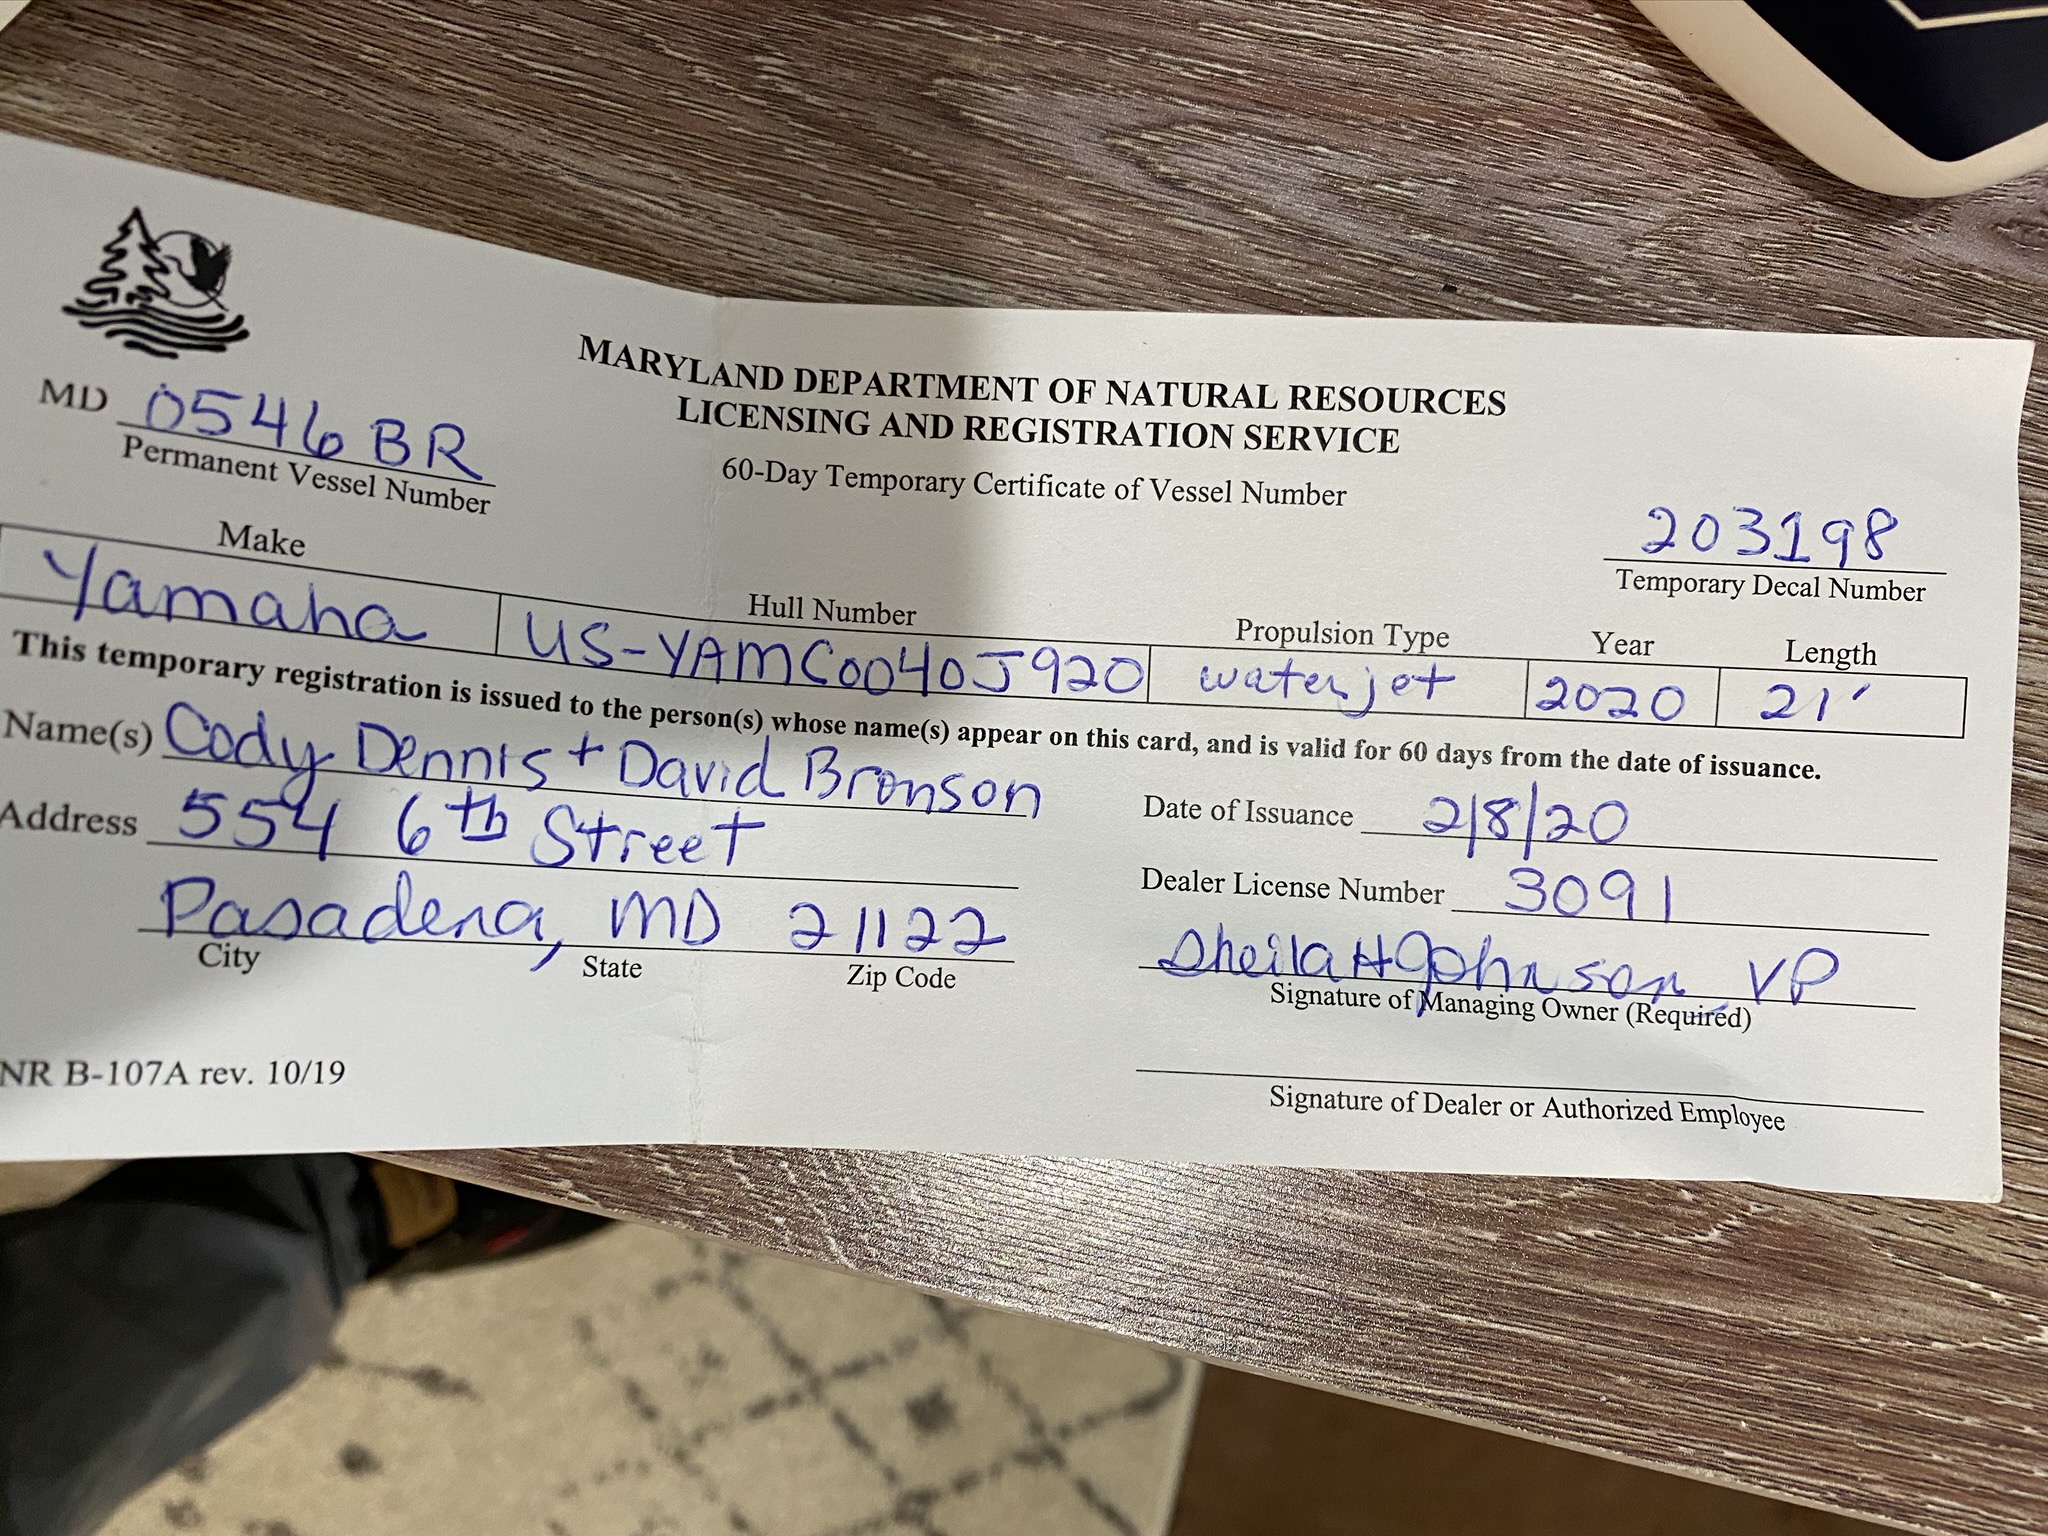 MARYLAND DEPARTMENT OF NATURAL RESOURCES
LICENSING AND REGISTRATION SERVICE
60-Day Temporary Certificate of Vessel Number
MD 0546 BR
Permanent Vessel Number
203198
Temporary Decal Number
Make Hull Number Propulsion Type Year Length
Yamaha US-YAMC0040J920 waterjet 2020 21'
This temporary registration is issued to the person(s) whose name(s) appear on this card, and is valid for 60 days from the date of issuance.
Name(s) Cody Dennis + David Bronson
Address 554 6th Street
Pasadena, MD 21122
City State Zip Code
Date of Issuance 2/8/20
Dealer License Number 3091
Sheila H Johnson VP
Signature of Managing Owner (Required)
Signature of Dealer or Authorized Employee
NR B-107A rev. 10/19